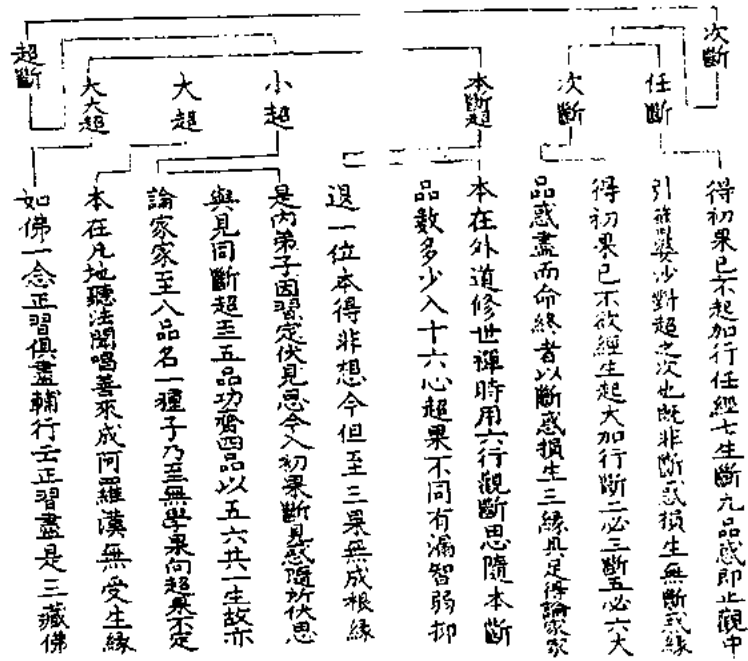 次斷
任斷
得初果已不起加行任經七生斷九品惑即止觀中
引薩婆沙對超之次也既非斷惑損生無斷惑緣
次斷
得初果已不欲經生起大加行斷二必三斷五必六大
品惑盡而命終者以斷惑損生三緣具足得論家家
超斷
本斷超
本在外道修世禪時用六行觀斷思隨本斷
品數多少入十六心超果不同有漏智弱抑
退一位本得非想今但至三果無成根緣
小超
是內弟子因習定伏見思今入初果斷見惑隨所伏思
與見同斷超至五品功齊四品以五六共一生故亦
論家家至八品名一種子乃至無學果向超果不定
大超
本在凡地聽法聞唱善來成阿羅漢無受生緣
大大超
如佛一念正習俱盡輔行云正習盡是三藏佛